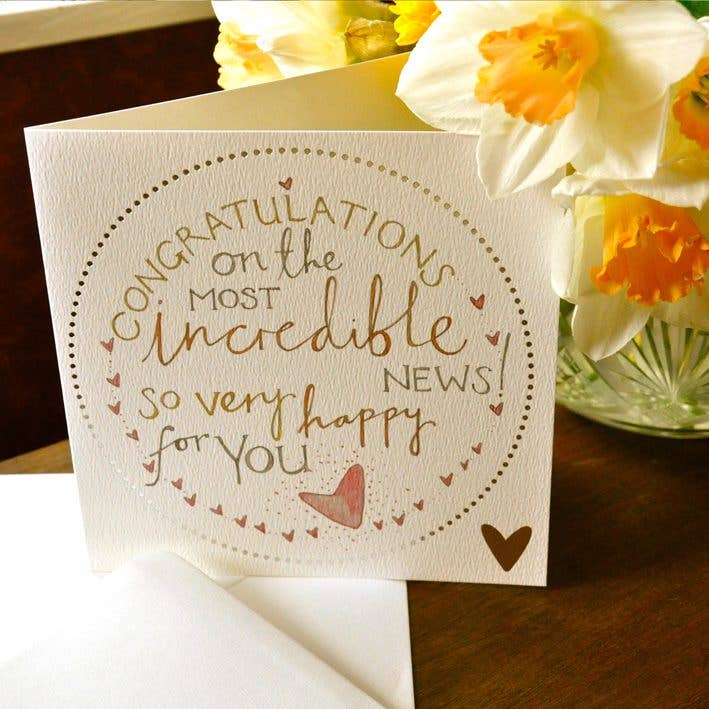 CONGRATULATIONS
on the
MOST
incredible
NEWS!
so very happy
for YOU